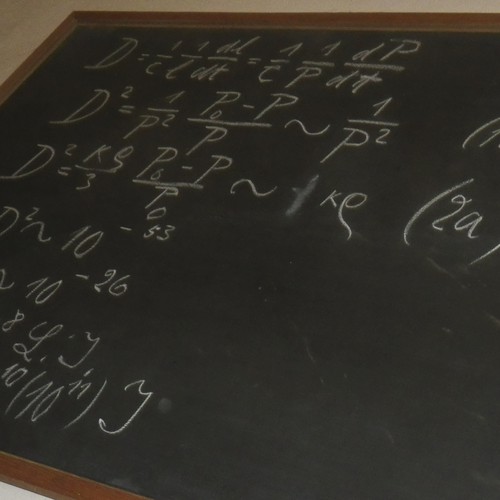 D = 1/c 1/l dl/dt = 1/c 1/P dP/dt
D² = 1/P² P₀-P/P ~ 1/P²
D² = κρ/3 P₀-P/P₀ ~ κρ (2a)
D² ~ 10⁻⁵³
~ 10⁻²⁶
8 L. J
10(10¹¹) J